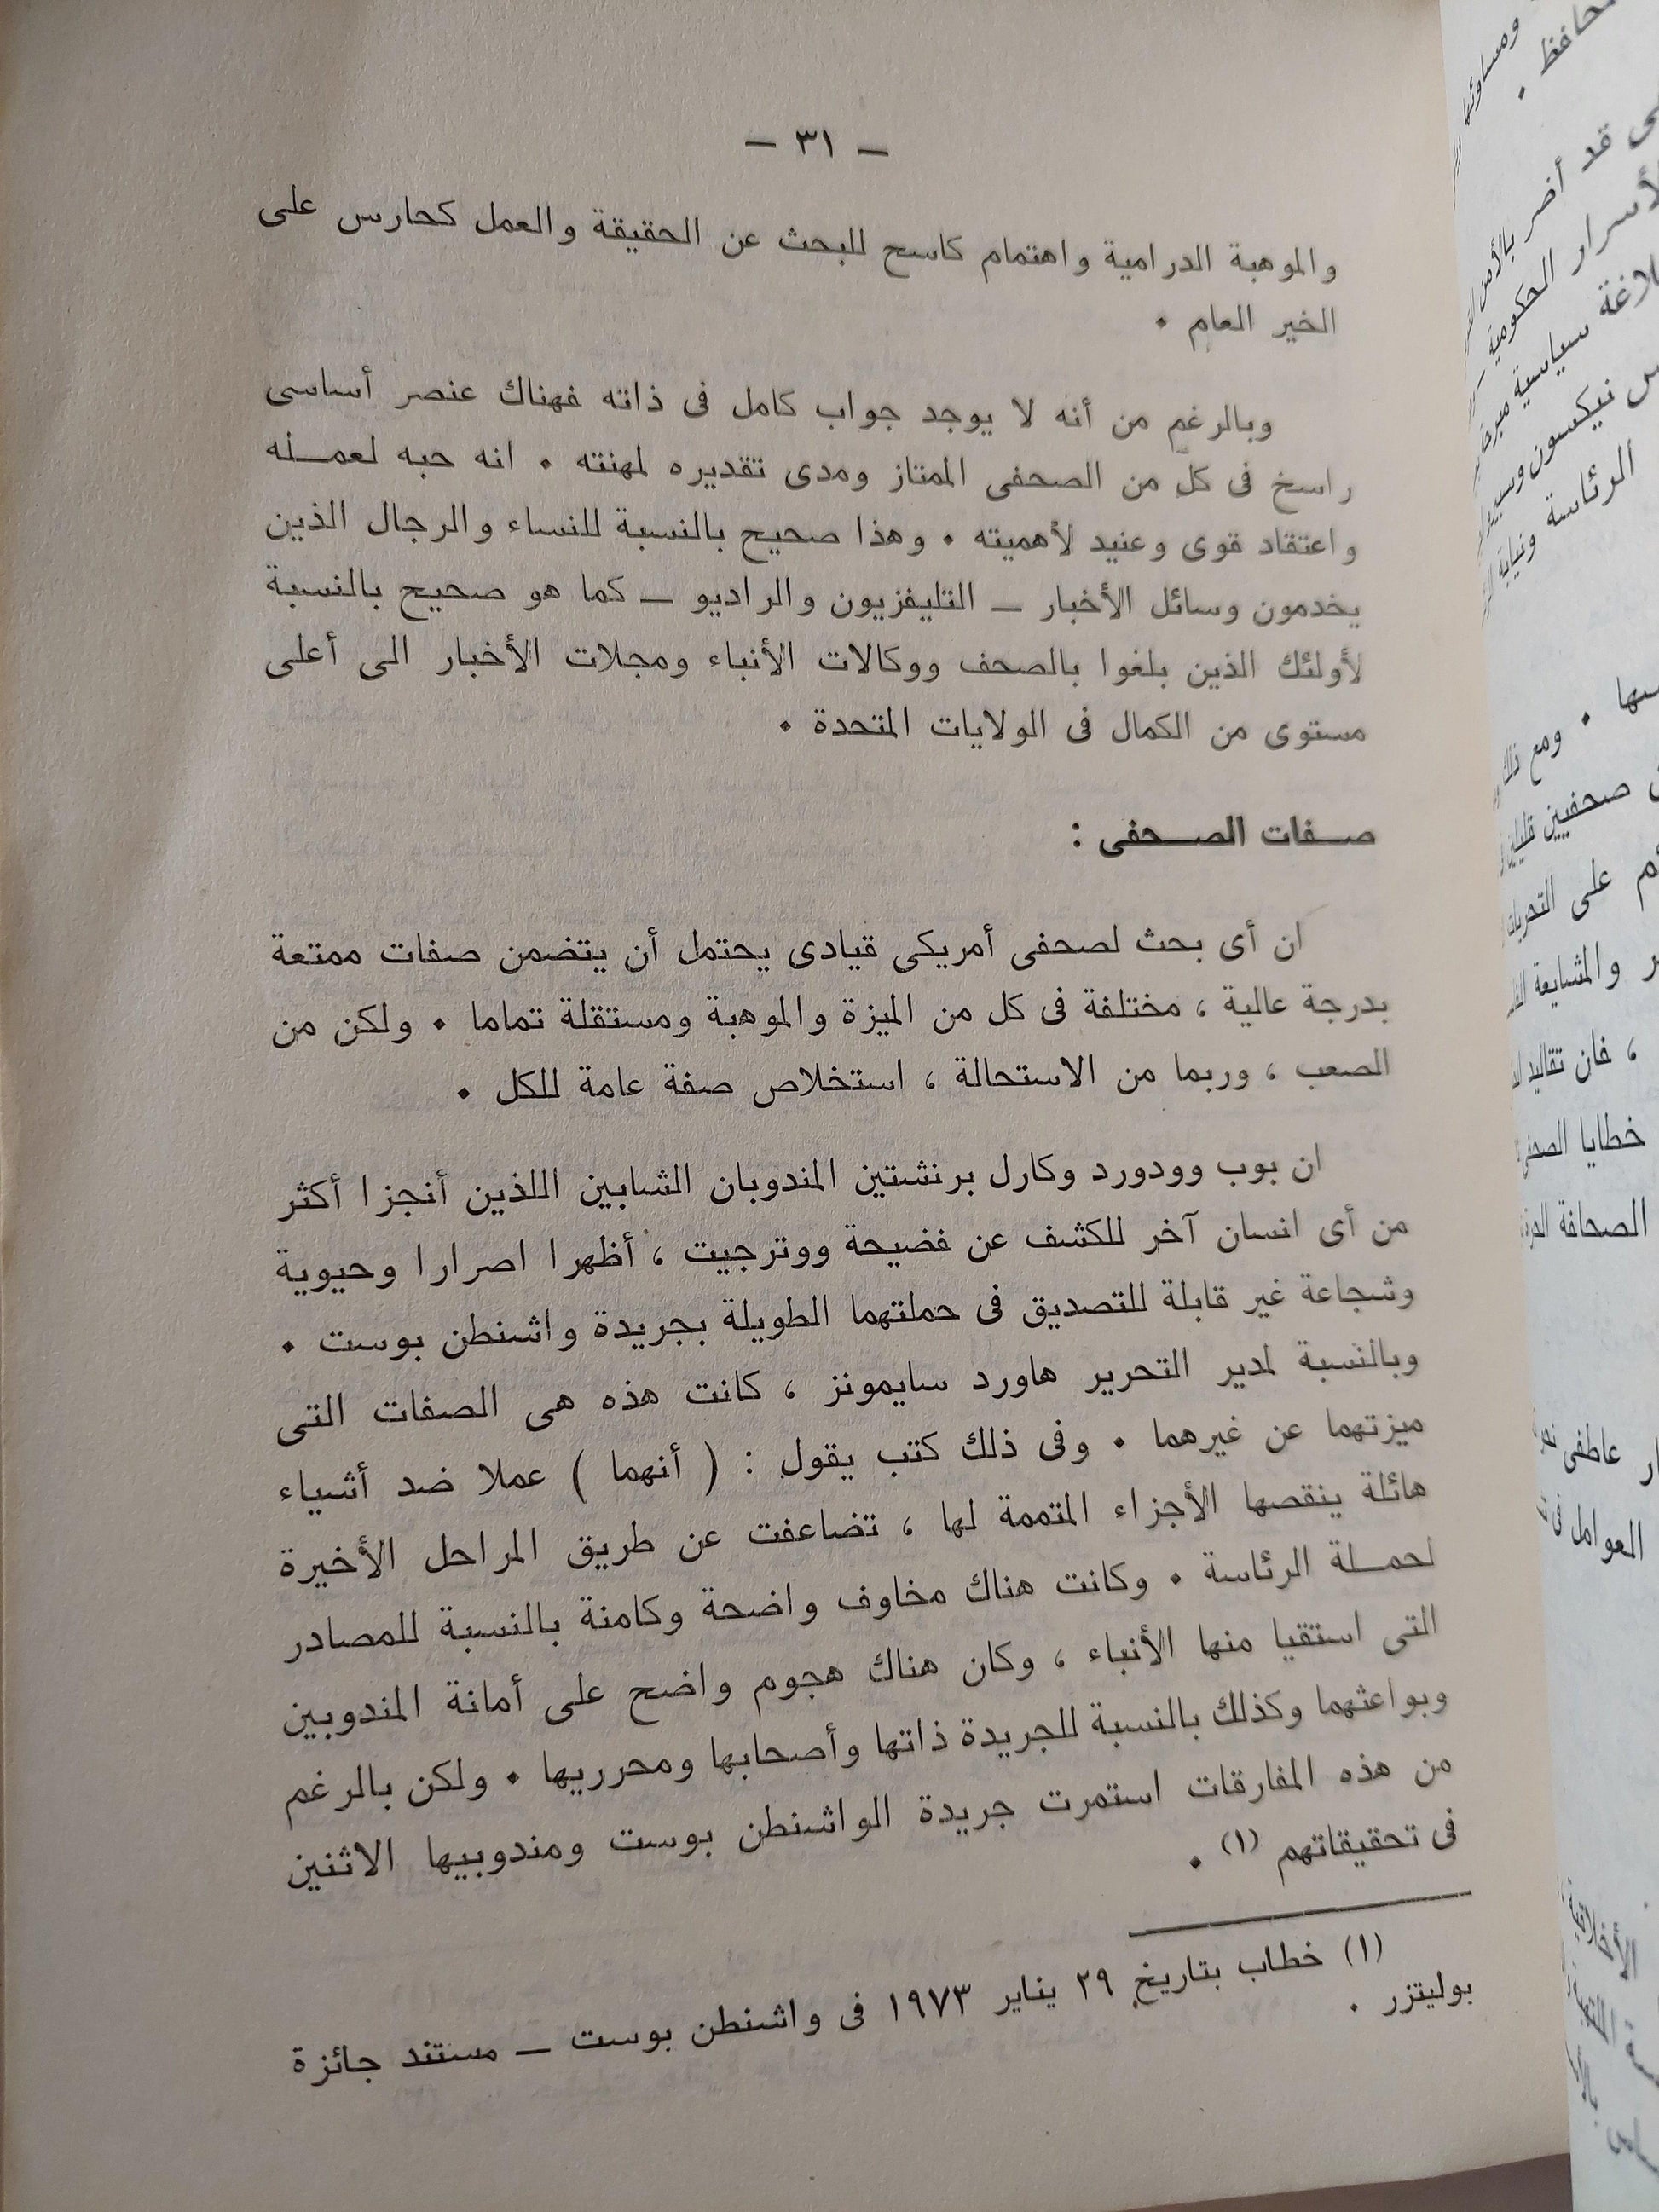 — ٣١ —
والموهبة الدرامية واهتمام كاسح للبحث عن الحقيقة والعمل كحارس على
الخير العام •
وبالرغم من أنه لا يوجد جواب كامل فى ذاته فهناك عنصر أساسى
راسخ فى كل من الصحفى الممتاز ومدى تقديره لمهنته • انه حبه لعمـله
واعتقاد قوى وعنيد لأهميته • وهذا صحيح بالنسبة للنساء والرجال الذين
يخدمون وسائل الأخبار — التليفزيون والراديو — كما هو صحيح بالنسبة
لأولئك الذين بلغوا بالصحف ووكالات الأنباء ومجلات الأخبار الى أعلى
مستوى من الكمال فى الولايات المتحدة •
صـفات الصـحفى :
ان أى بحث لصحفى أمريكى قيادى يحتمل أن يتضمن صفات ممتعة
بدرجة عالية ، مختلفة فى كل من الميزة والموهبة ومستقلة تماما • ولكن من
الصعب ، وربما من الاستحالة ، استخلاص صفة عامة للكل •
ان بوب وودورد وكارل برنشتين المندوبان الشابين اللذين أنجزا أكثر
من أى انسان آخر للكشف عن فضيحة ووترجيت ، أظهرا اصرارا وحيوية
وشجاعة غير قابلة للتصديق فى حملتهما الطويلة بجريدة واشنطن بوست •
وبالنسبة لمدير التحرير هاورد سايمونز ، كانت هذه هى الصفات التى
ميزتهما عن غيرهما • وفى ذلك كتب يقول : ( أنهما ) عملا ضد أشياء
هائلة ينقصها الأجزاء المتممة لها ، تضاعفت عن طريق المراحل الأخيرة
لحمـلة الرئاسة • وكانت هناك مخاوف واضحة وكامنة بالنسبة للمصادر
التى استقيا منها الأنباء ، وكان هناك هجوم واضح على أمانة المندوبين
وبواعثهما وكذلك بالنسبة للجريدة ذاتها وأصحابها ومحرريها • ولكن بالرغم
من هذه المفارقات استمرت جريدة الواشنطن بوست ومندوبيها الاثنين
فى تحقيقاتهم (١) •
(١) خطاب بتاريخ ٢٩ يناير ١٩٧٣ فى واشنطن بوست — مستند جائزة
بوليتزر •
ومساوئها
محافظ •
قد أضر بالأمن
الحكومية
سياسية
نيكسون
الرئاسة ونيابة
• ومع ذلك
صحفيين
على التحريات
والمشايعة
، فان تقاليد
خطايا
الصحافة
عاطفى
العوامل فى